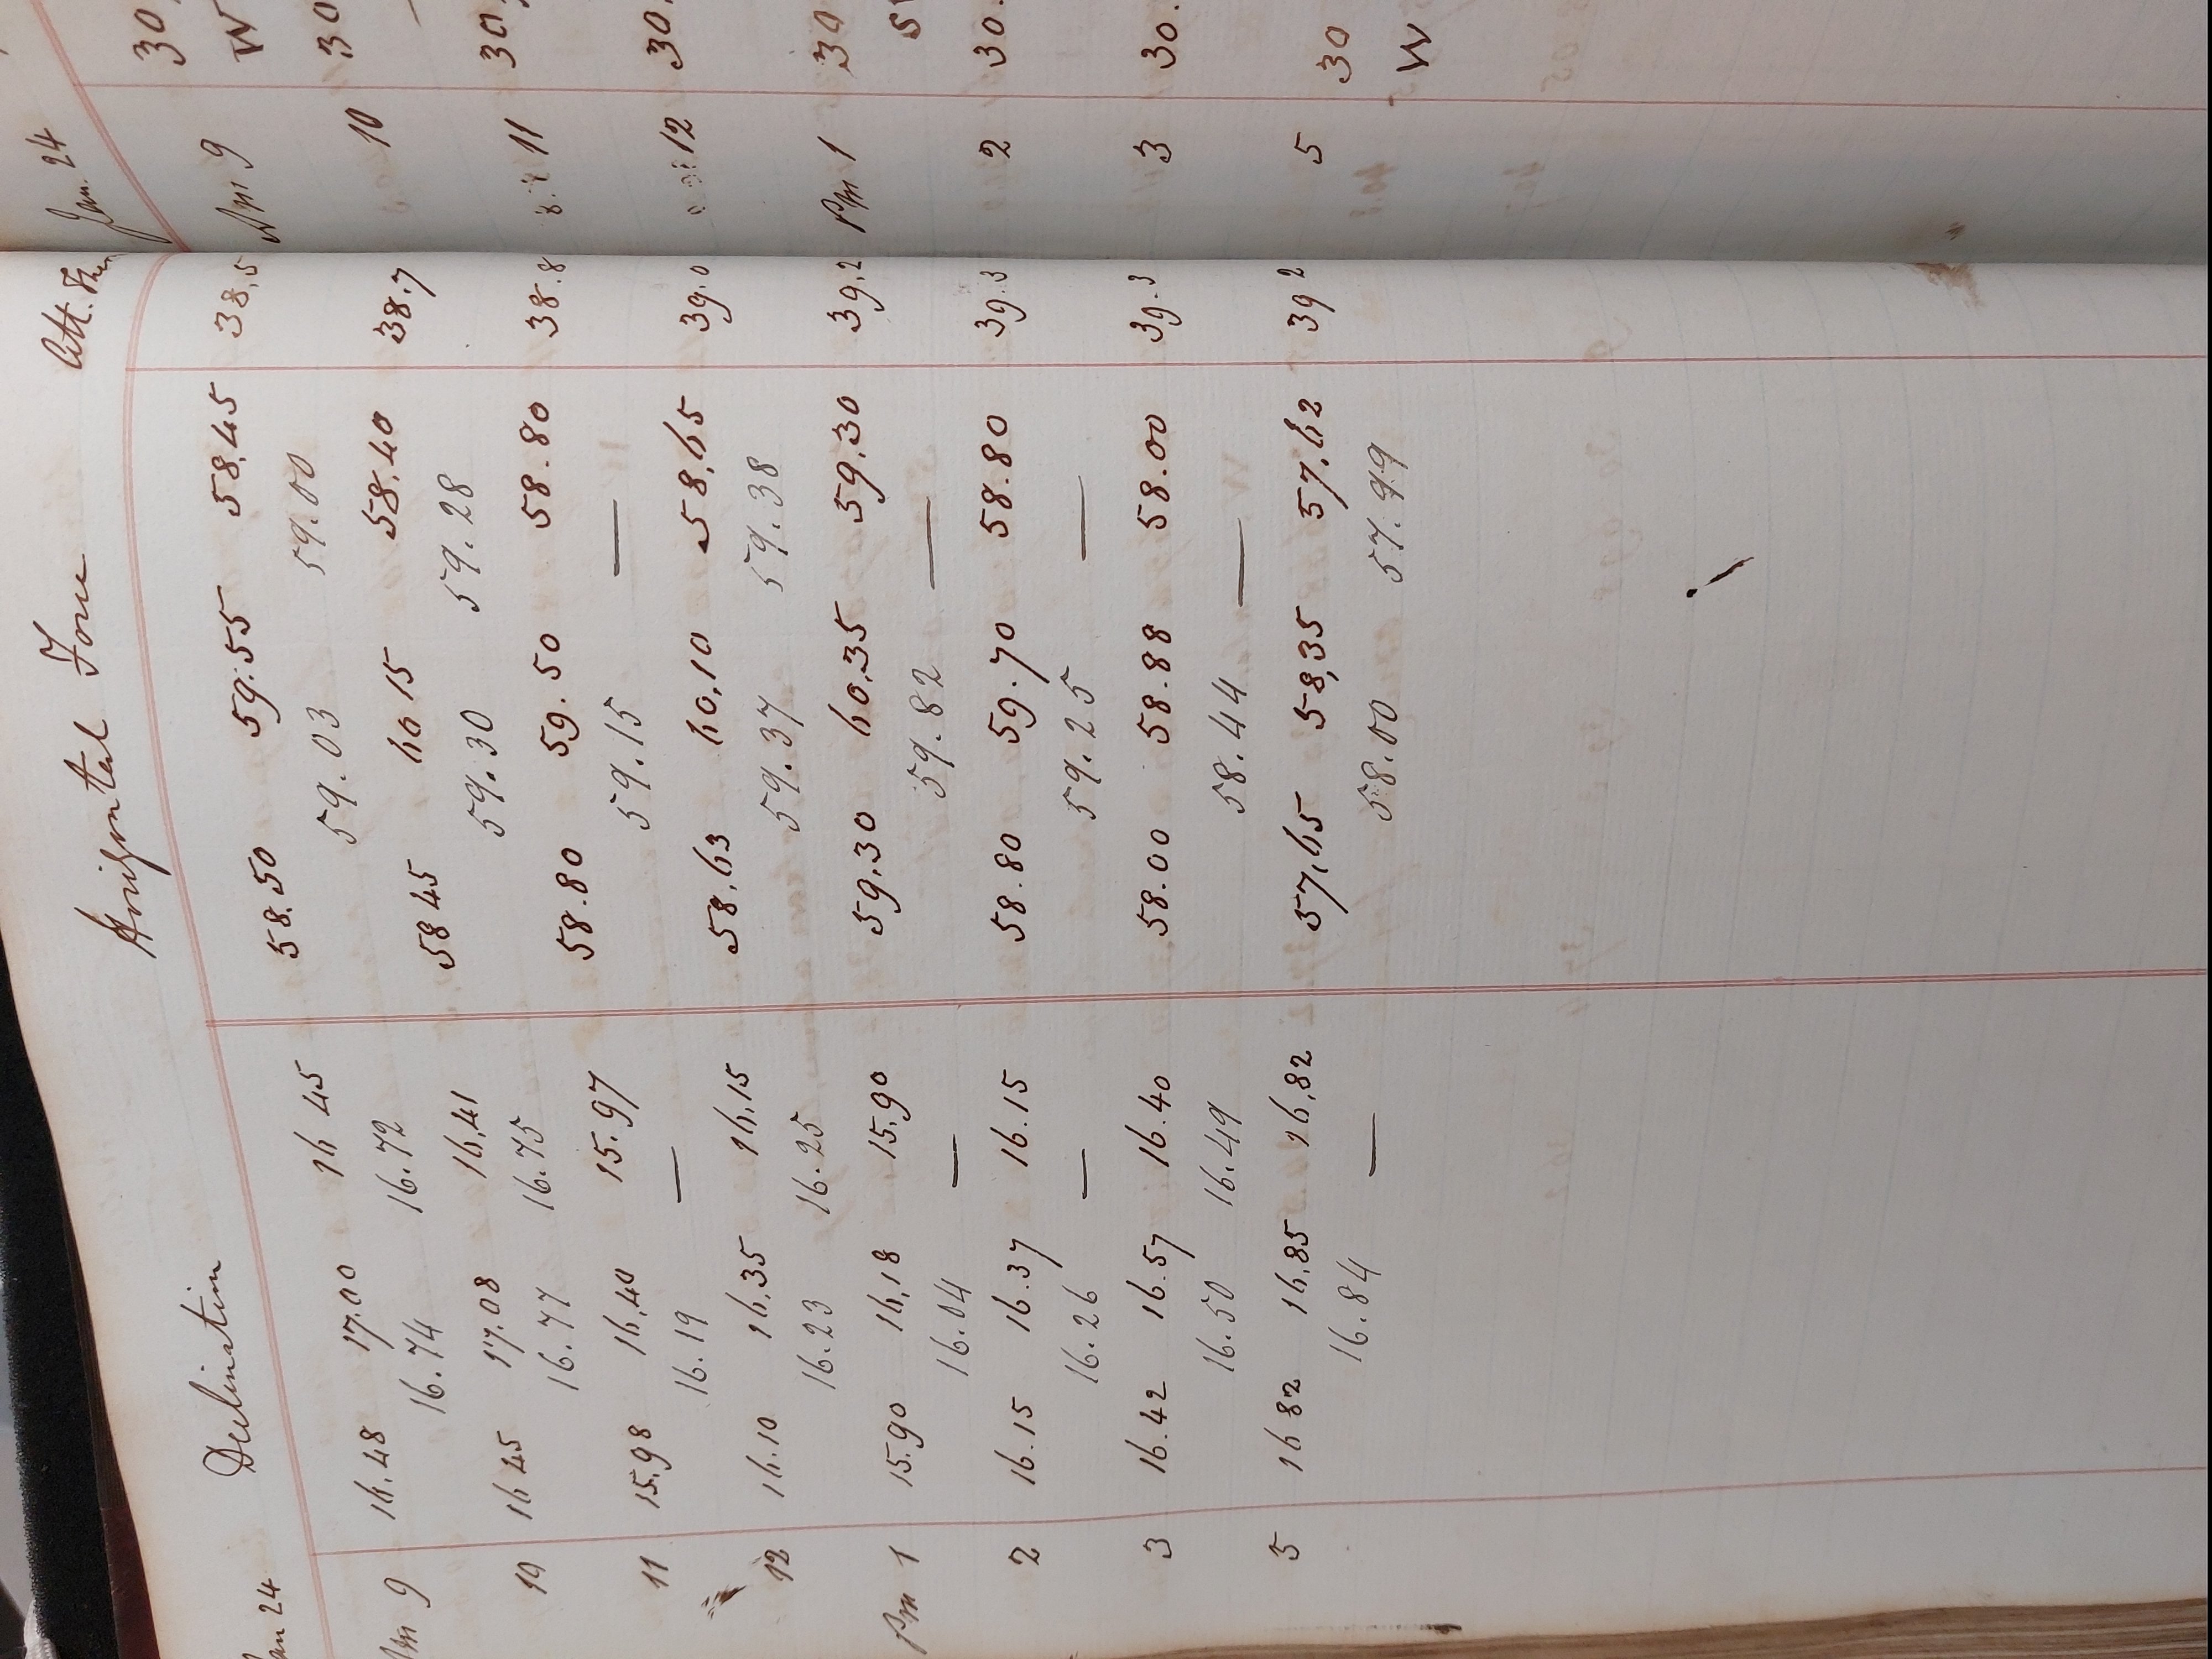 Horizontal Force Att. Ther
Declination
Jan 24
Am 9 16.48 17.00 16 45 58.50 59.55 58.45 38.5
16.74 16.72 59.03 59.00
10 16 45 17.08 16,41 58 45 60 15 58.40 38.7
16.77 16.75 59.30 59.28
11 15.98 16,40 15.97 58.80 59.50 58.80 38.8
16.19 — 59.15 —
12 16.10 16,35 16,15 58,63 60,10 58,65 39.0
16.23 16.25 59.37 59.38
Pm 1 15.90 16,18 15.90 59,30 60,35 59,30 39.2
16.04 — 59.82 —
2 16.15 16.37 16.15 58.80 59.70 58.80 39.3
16.26 — 59.25 —
3 16.42 16.57 16.40 58.00 58.88 58.00 39.3
16.50 16.49 58.44 —
5 16 82 16,85 16,82 57,65 58,35 57.62 39 2
16.84 — 58.00 57.99
Jan. 24
30,
Am 9 W
10 30
11 30,
12 30.
Pm 1 30
2 30.
3 30.
5 30
W